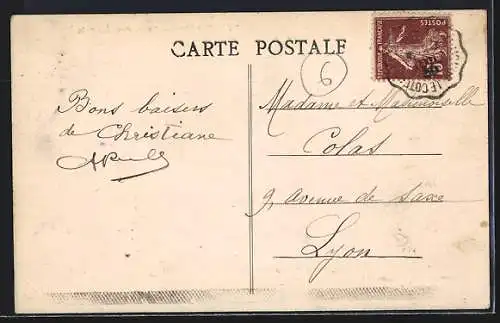 CARTE POSTALE
6
POSTES
LE COTE
Bons baisers
de Christiane
Madame et Mademoiselle
Colas
9, avenue de Saxe
Lyon